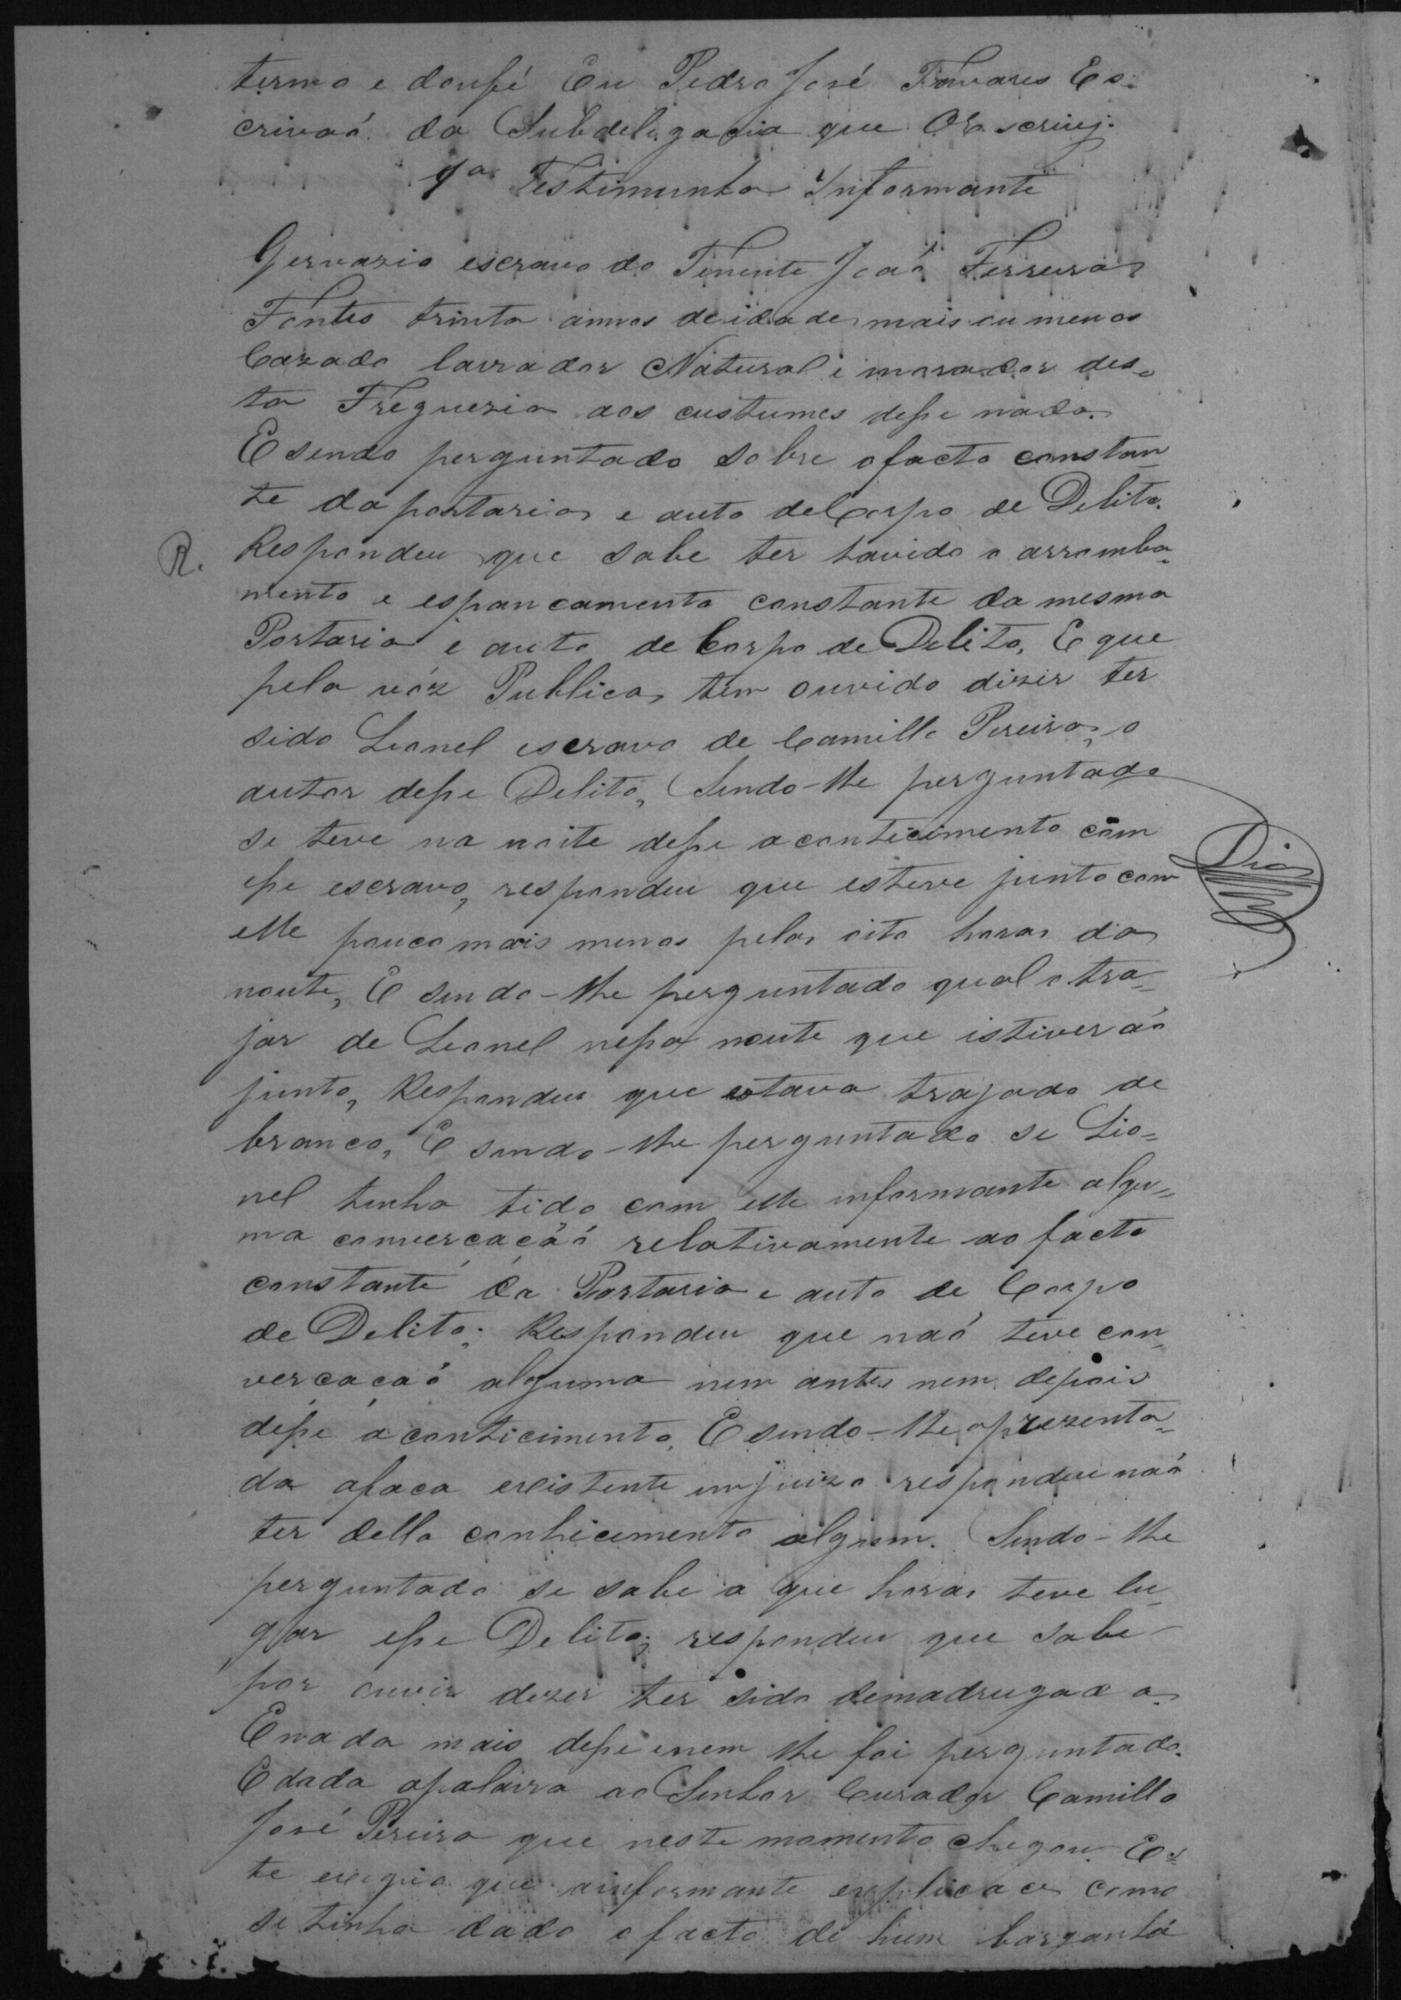 termo e doufé Eu Pedro José Tavares Es-
crivaó da Subdelegacia que Oescrivy.
1ª Testimunha Informante
Gervazio escravo do Tenente Joaó Ferreira
Fontes trinta annos de idade mais ou menos
Cazado lavrador Natural e morador des-
ta Freguezia aos custumes disse nada.
E sendo perguntado sobre o facto constan-
te da portaria e auto de Corpo de Delito.
R. Respondeu que sabe ter havido o arromba-
mento e espancamento constante da mesma
Portaria e auto de Corpo de Delito, E que
pela vóz Publica, tem ouvido dizer ter
sido Leonel escravo de Camillo Pereira, o
autor desse Delito, Sendo-lhe perguntado
se teve na noite desse acontecimento com
esse escravo, respondeu que esteve junto com
elle pouco mais menos pelas oito horas da
noute, E sendo-lhe perguntado qual o tra-
jar de Leonel nessa noute que estiveráo
Dias
junto, Respondeu que estava trajado de
branco, E sendo-lhe perguntado se Lio-
nel tinha tido com elle informante algu-
ma convercação relativamente ao facto
constante da Portaria e auto de Corpo
de Delito; Respondeu que naó teve con-
vercacaó alguma nem antes nem depois
desse aconticimento, E sendo-lhe aprezenta-
da afaca existente em juizo respondeu naó
ter della conhicimento algum. Sendo-lhe
perguntado se sabe a que horas teve lu-
gar esse Delito; respondeu que sabe
por ouvir dizer ter sido demadrugada.
E nada mais disse enem lhe foi perguntado.
E dada apalavra ao Senhor Curador Camillo
José Pereira que neste momento chegou. Es-
te exigio que oinformante explicace como
se tinha dado o facto de hum